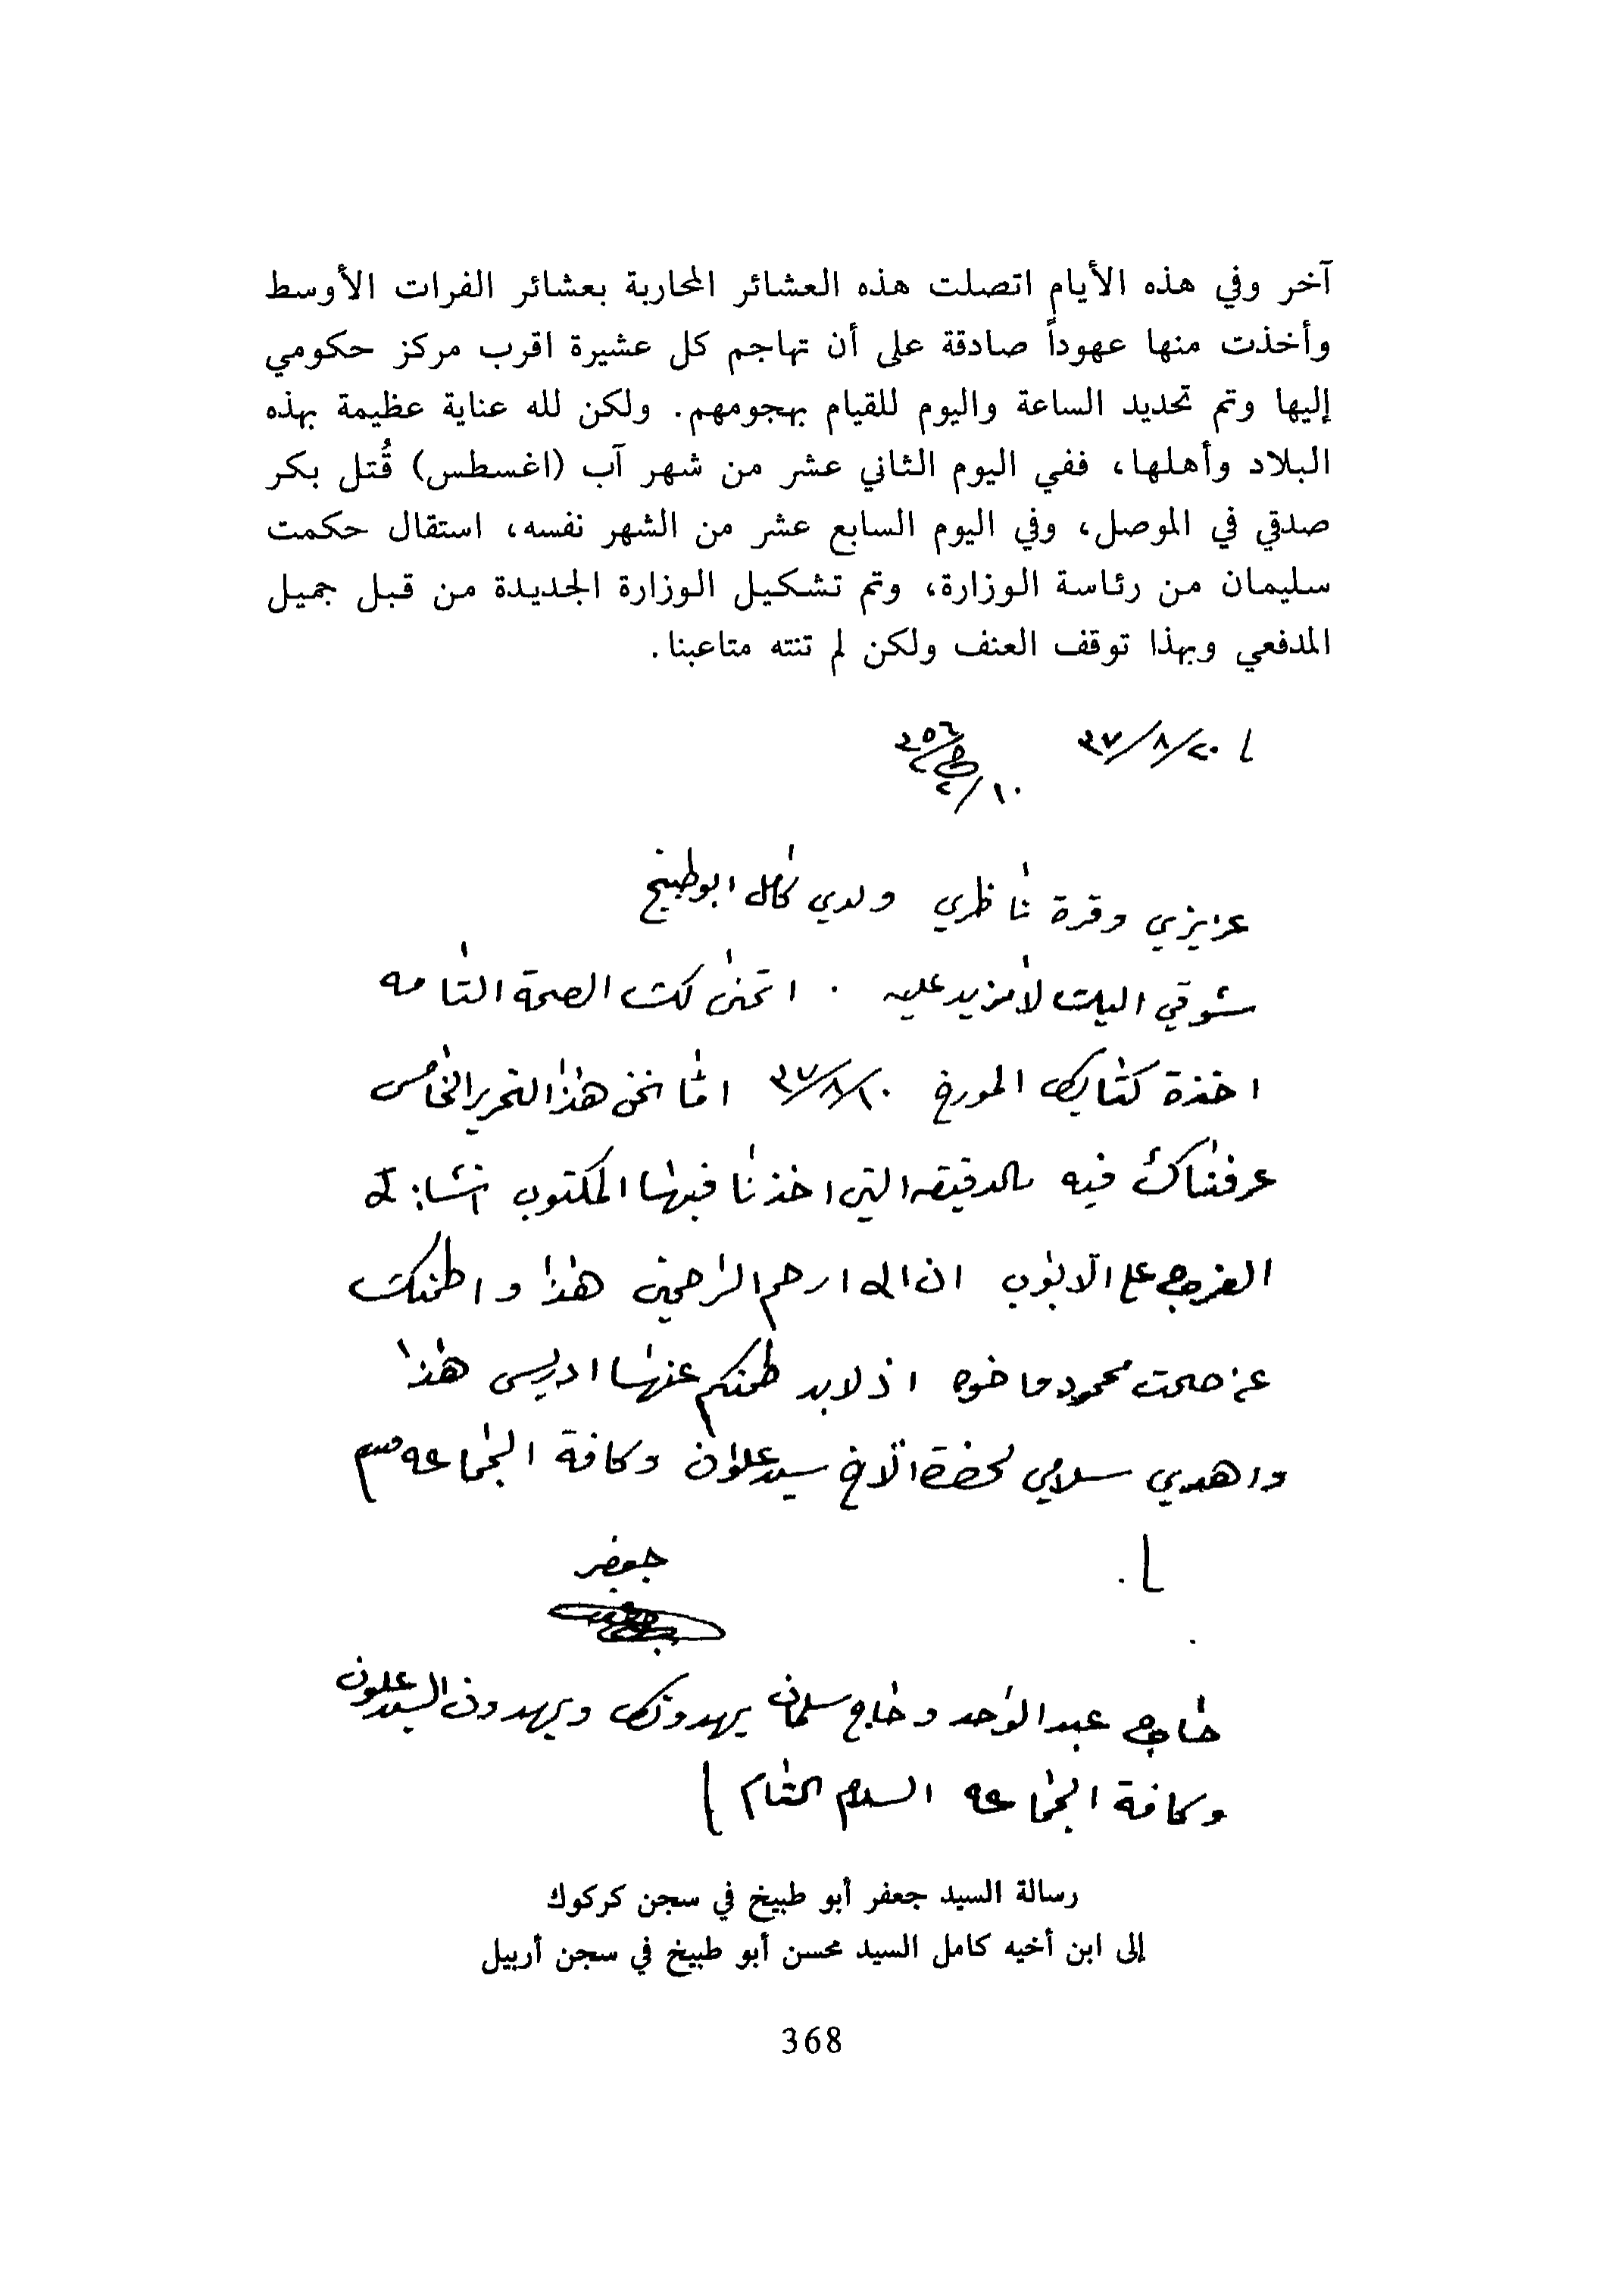 آخر وفي هذه الأيام اتصلت هذه العشائر المحاربة بعشائر الفرات الأوسط
وأخذت منها عهوداً صادقة على أن تهاجم كل عشيرة اقرب مركز حكومي
إليها وتم تحديد الساعة واليوم للقيام بهجومهم. ولكن لله عناية عظيمة بهذه
البلاد وأهلها، ففي اليوم الثاني عشر من شهر آب (اغسطس) قُتل بكر
صدقي في الموصل، وفي اليوم السابع عشر من الشهر نفسه، استقال حكمت
سليمان من رئاسة الوزارة، وتم تشكيل الوزارة الجديدة من قبل جميل
المدفعي وبهذا توقف العنف ولكن لم تنته متاعبنا.
٣٧/٨/٢٠
عزيزي وقرة ناظري ولدي كامل ابوطبيخ
شوقي اليك لا مزيد عليه . اتمنى لك الصحة التامه
اخذة كتابك المورخ ٣٧/٨/١٠ اما نحن هذا التحرير الخامس
عرفناك فيه بالدقيقه التي اخذنا فيها المكتوب
على الابوب ان الله ارحم الرحمين هذا واطمنك
عن صحت محمود واخوه اذ لابد طمنكم عنها ادريس هذا
واهدي سلامي لحضرة الاخ سيد علوان وكافة الجماعه
جعفر
حاج عبد الوحد وحاج سلمان يهدونك ويهدون السيد علوان
وكافة الجماعه السلام
رسالة السيد جعفر أبو طبيخ في سجن كركوك
إلى ابن أخيه كامل السيد محسن أبو طبيخ في سجن أربيل
368